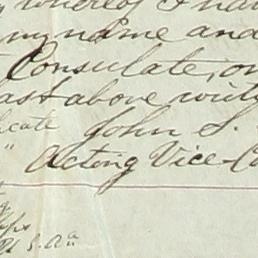 whereof I hav
my name and
Consulate, on
ast above writ
icate John S.
" Acting Vice-Co
S. a